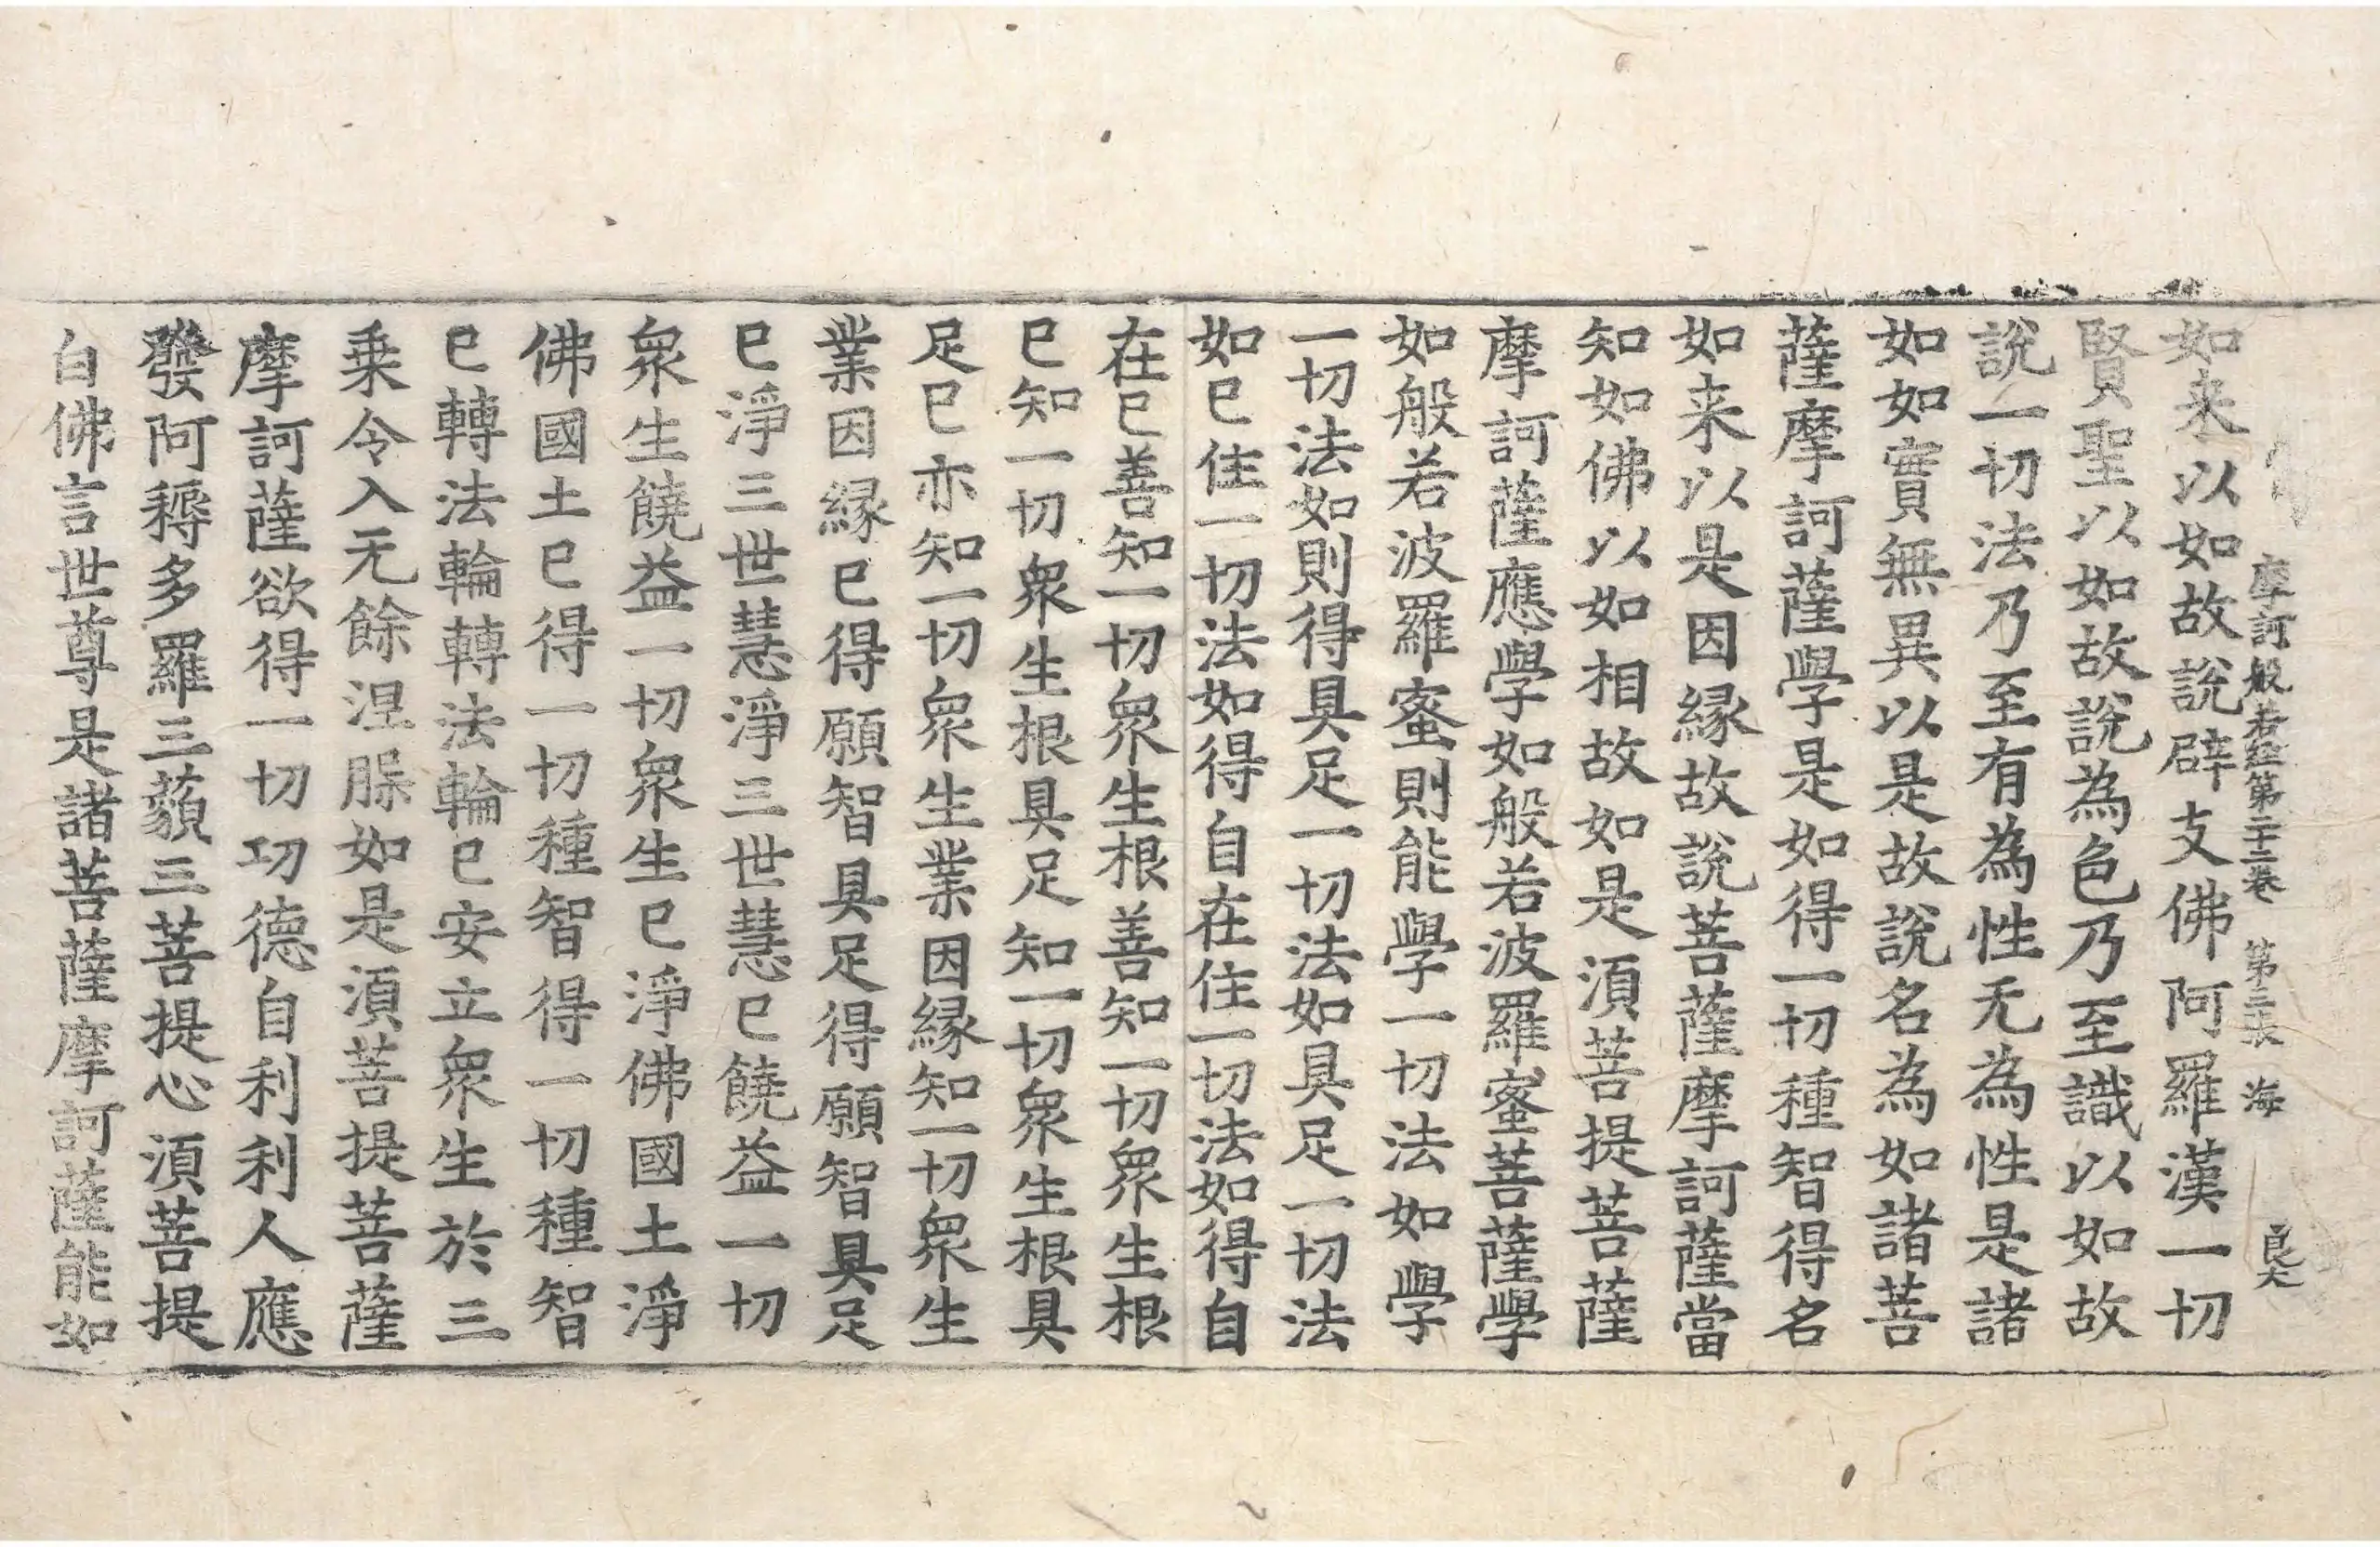 摩訶般若經第二十二卷　第三張　海　良文
如来以如故說辟支佛阿羅漢一切
賢聖以如故說為色乃至識以如故
說一切法乃至有為性无為性是諸
如如實無異以是故說名為如諸菩
薩摩訶薩學是如得一切種智得名
如来以是因縁故說菩薩摩訶薩當
知如佛以如相故如是湏菩提菩薩
摩訶薩應學如般若波羅蜜菩薩學
如般若波羅蜜則能學一切法如學
一切法如則得具足一切法如具足一切法
如巳住一切法如得自在住一切法如得自
在巳善知一切衆生根善知一切衆生根
巳知一切衆生根具足知一切衆生根具
足巳亦知一切衆生業因縁知一切衆生
業因縁巳得願智具足得願智具足
巳淨三世慧淨三世慧巳饒益一切
衆生饒益一切衆生巳淨佛國土淨
佛國土巳得一切種智得一切種智
巳轉法輪轉法輪巳安立衆生於三
乗令入无餘涅槃如是湏菩提菩薩
摩訶薩欲得一切功德自利利人應
發阿耨多羅三藐三菩提心湏菩提
白佛言世尊是諸菩薩摩訶薩能如